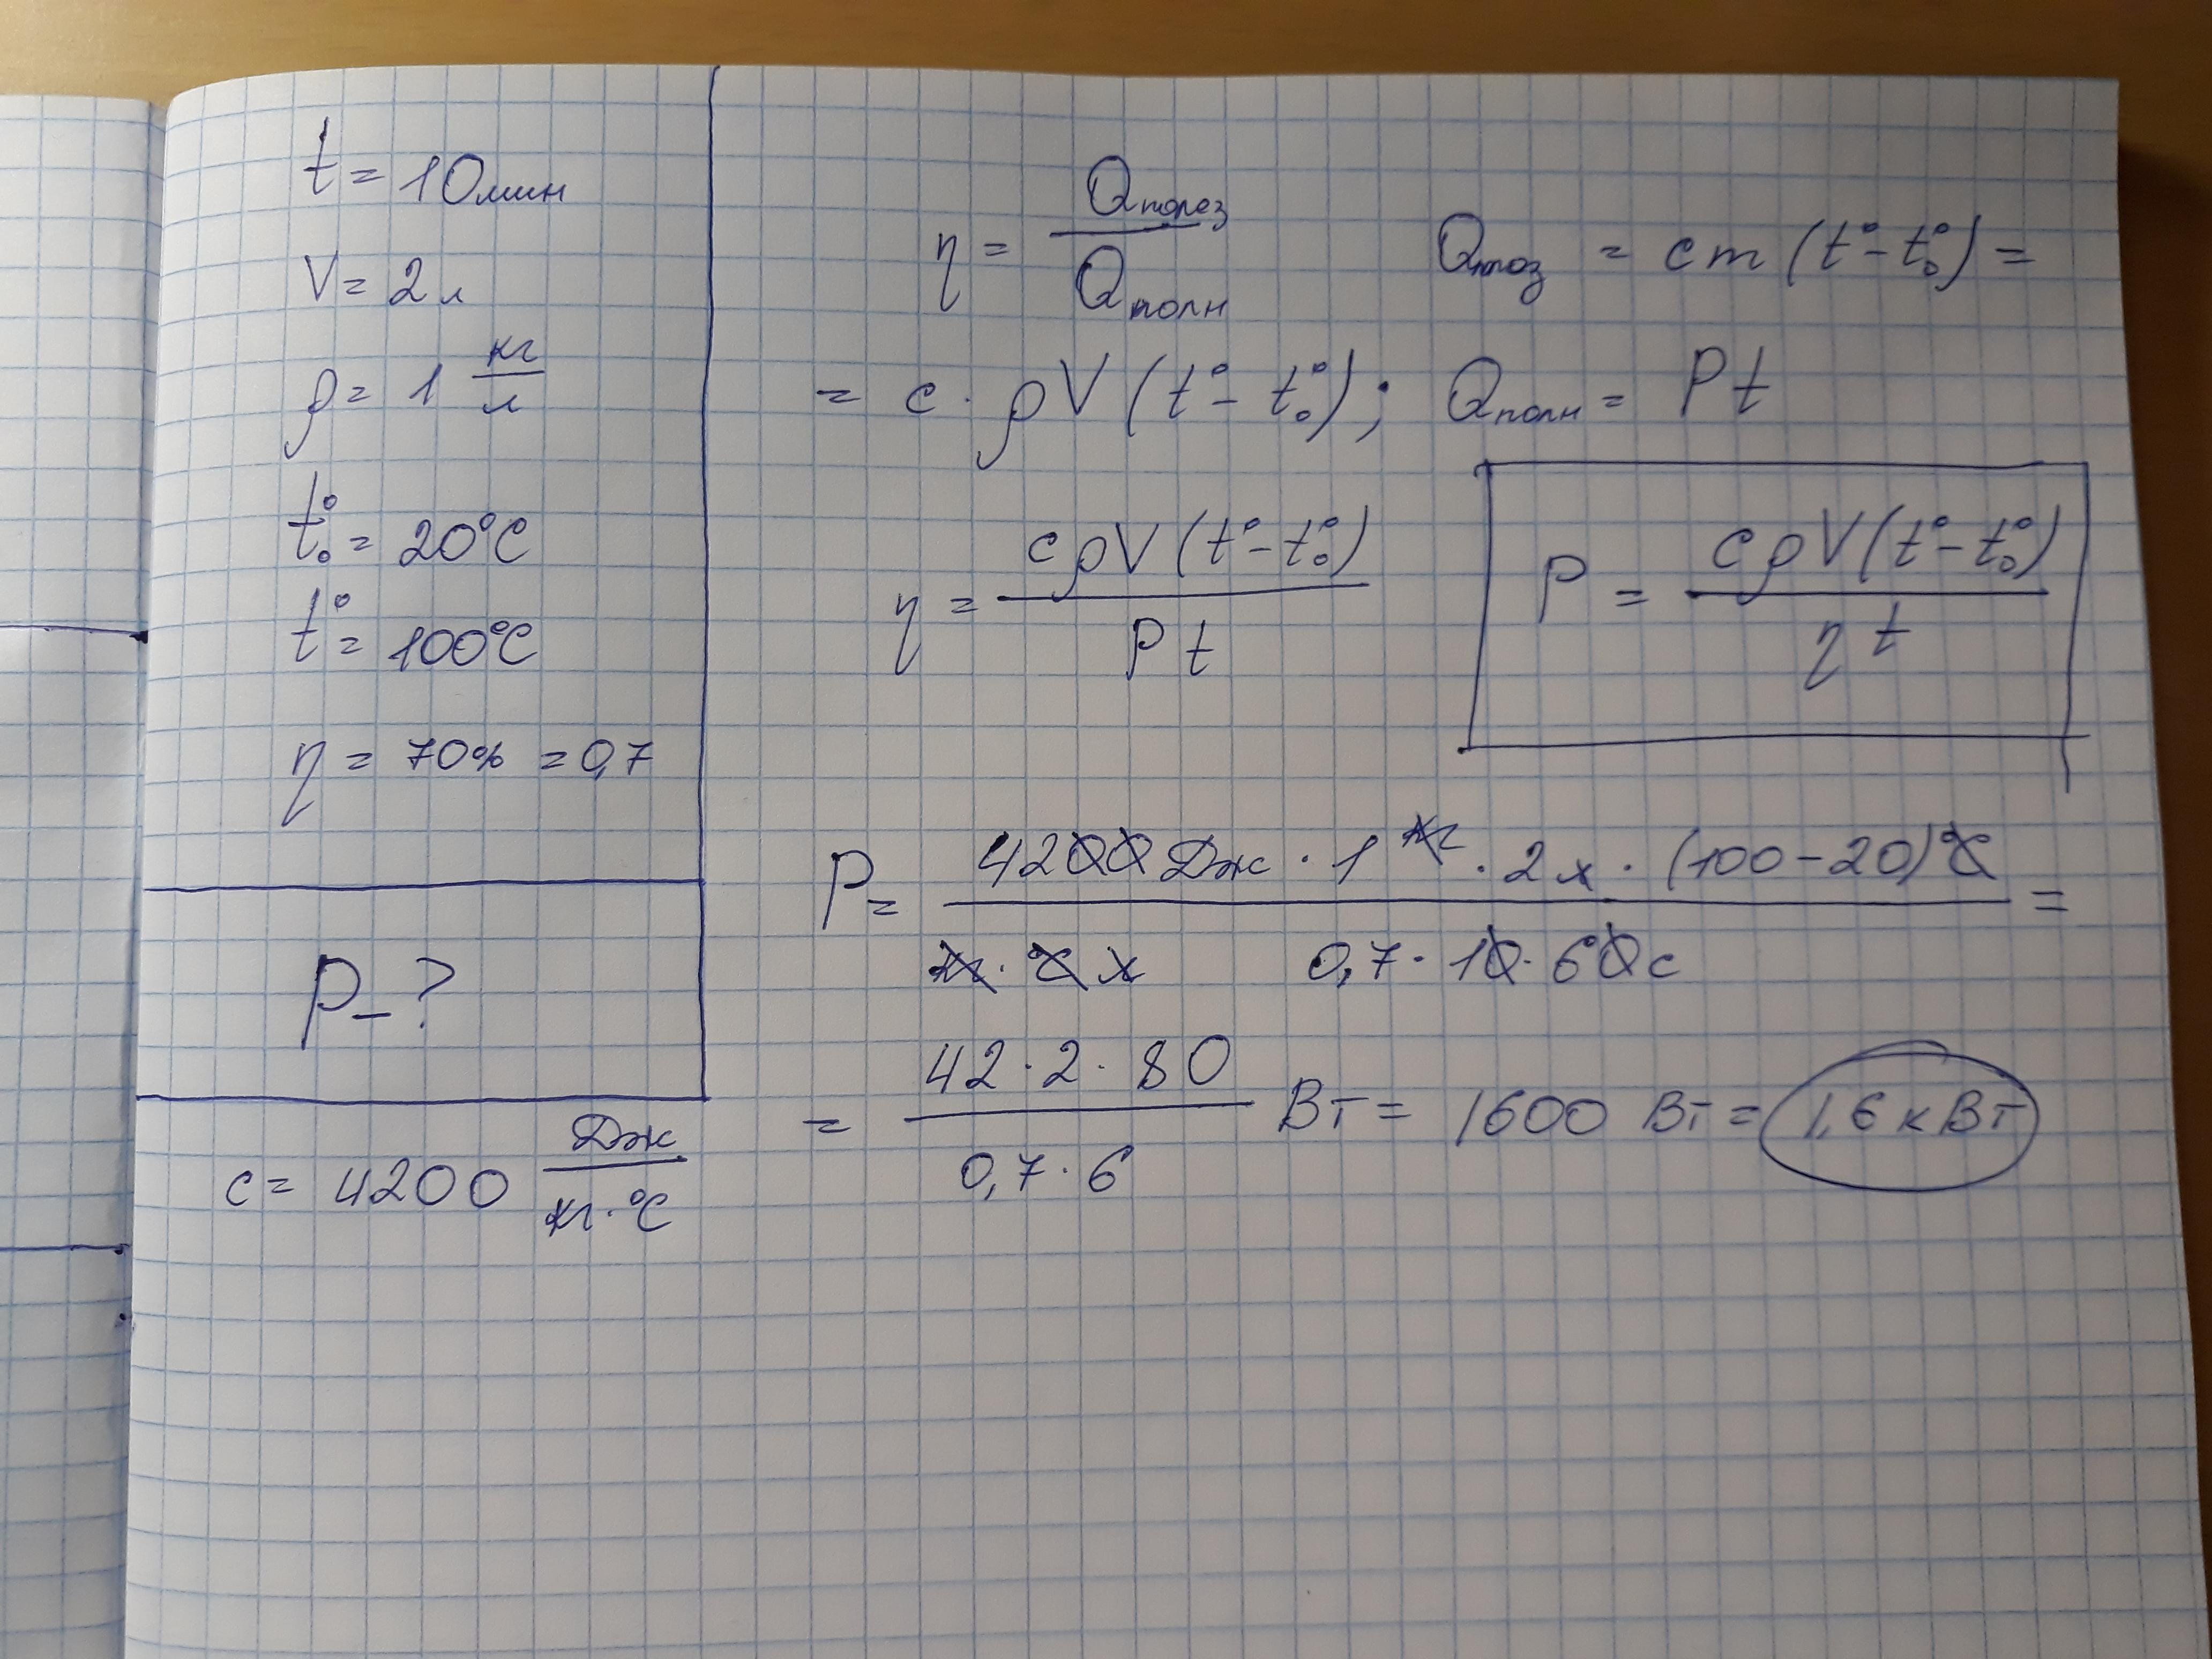 t = 10 мин
V = 2 л
ρ = 1 кг/л
t°₀ = 20°C
t° = 100°C
η = 70% = 0,7
P - ?
c = 4200 Дж/кг·°C
η = Qполез/Qполн Qпоз = cm(t° - t°₀) =
= c · ρV(t° - t°₀); Qполн = Pt
η = cρV(t° - t°₀)/Pt P = cρV(t° - t°₀)/ηt
P = 4200 Дж · 1 кг · 2 л · (100 - 20)°C / кг · °C л 0,7 · 10 · 60 с =
= 42 · 2 · 80 / 0,7 · 6 Вт = 1600 Вт = 1,6 кВт